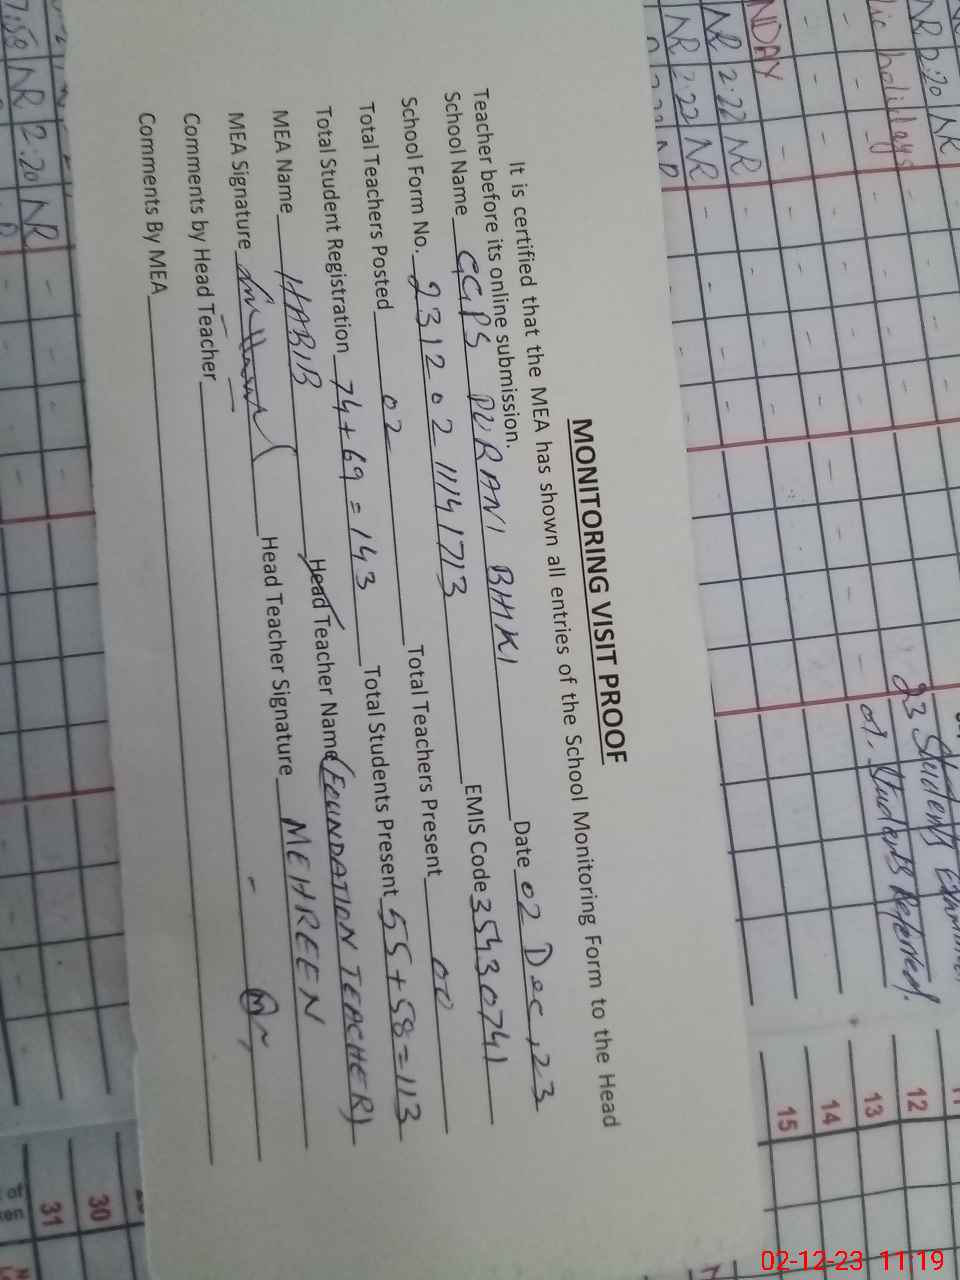 MONITORING VISIT PROOF
It is certified that the MEA has shown all entries of the School Monitoring Form to the Head
Teacher before its online submission.
School Name GGPS PURANI BHIKI Date 02 Dec, 23
School Form No. 231202 11141713 EMIS Code 35430741
Total Teachers Posted 02 Total Teachers Present 00
Total Student Registration 74+69=143 Total Students Present 55+58=113
MEA Name HABIB Head Teacher Name (FOUNDATION TEACHER)
MEHREEN
MEA Signature Head Teacher Signature
Comments by Head Teacher
Comments By MEA
NR 2:20 NR
holidays
NDAY
NR 2:22 NR
NR 2:22 NR
7:58 NR 2:20 NR
23 Students
01. Students Referred.
12
13
14
15
30
31
of
02-12-23 11:19